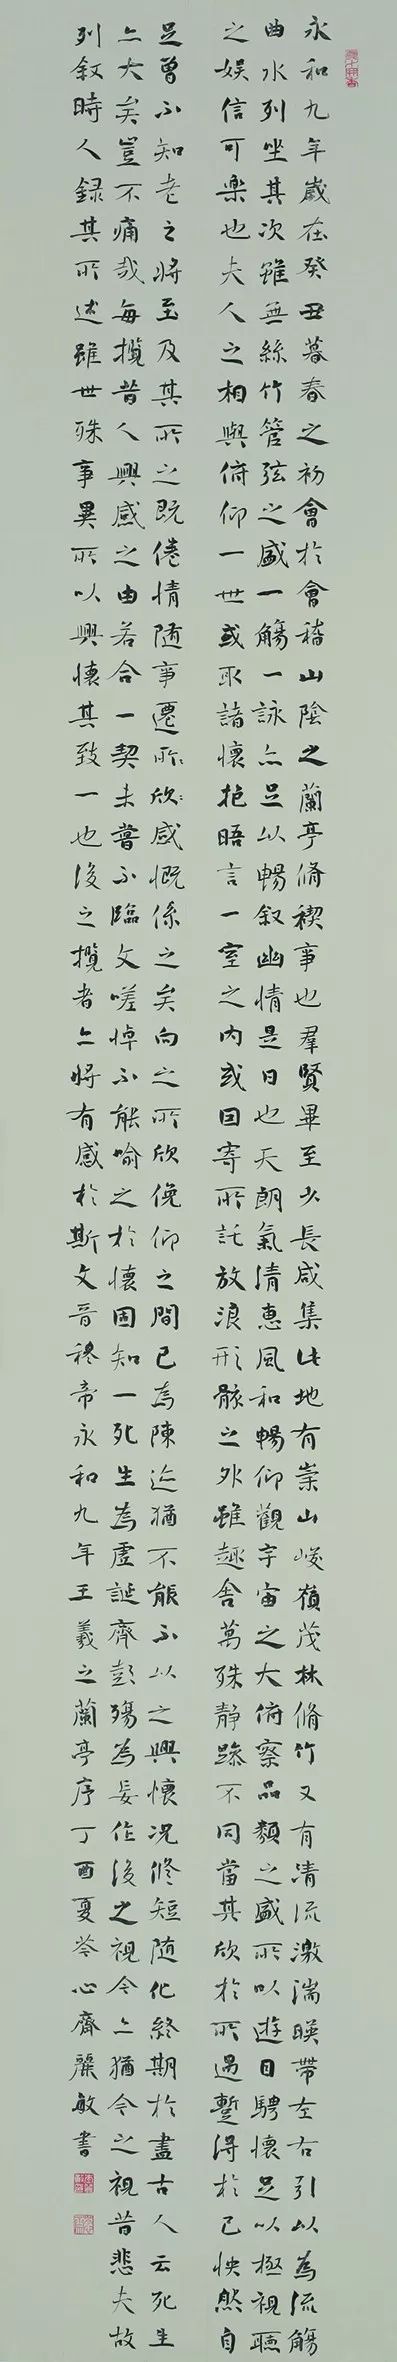 永和九年歲在癸丑暮春之初會於會稽山陰之蘭亭脩禊事也羣賢畢至少長咸集此地有崇山峻嶺茂林脩竹又有清流激湍暎帶左右引以為流觴
曲水列坐其次雖無絲竹管弦之盛一觴一詠亦足以暢叙幽情是日也天朗氣清惠風和暢仰觀宇宙之大俯察品類之盛所以遊目騁懷足以極視聽
之娛信可樂也夫人之相與俯仰一世或取諸懷抱晤言一室之內或因寄所託放浪形骸之外雖趣舍萬殊靜躁不同當其欣於所遇蹔得於己怏然自
足曾不知老之將至及其所之既倦情隨事遷所欣感慨係之矣向之所欣俛仰之間已為陳迹猶不能不以之興懷況修短隨化終期於盡古人云死生
亦大矣豈不痛哉每攬昔人興感之由若合一契未嘗不臨文嗟悼不能喻之於懷固知一死生為虛誕齊彭殤為妄作後之視今亦猶今之視昔悲夫故
列叙時人錄其所述雖世殊事異所以興懷其致一也後之攬者亦將有感於斯文晉穆帝永和九年王羲之蘭亭序丁酉夏苓心齋麗敏書